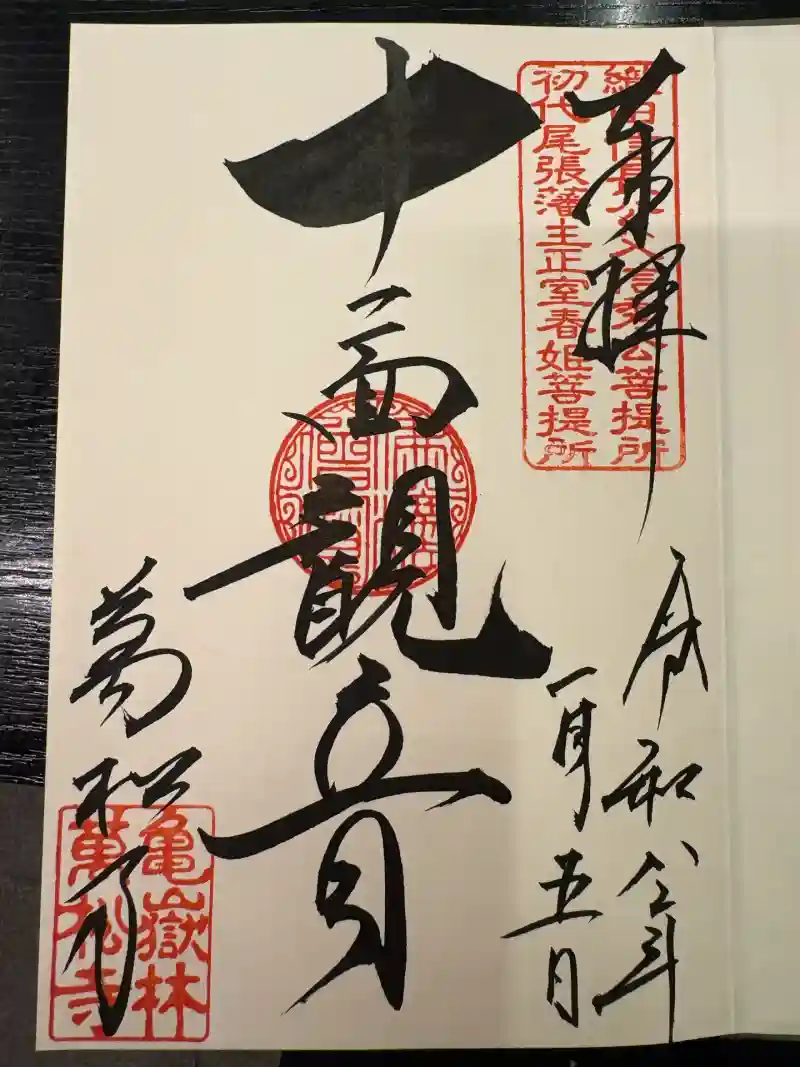 奉拝
織田信長公父信秀公菩提所
初代尾張藩主正室春姫菩提所
令和八年
一月五日
十一面観音
萬松寺
亀嶽林
萬松寺